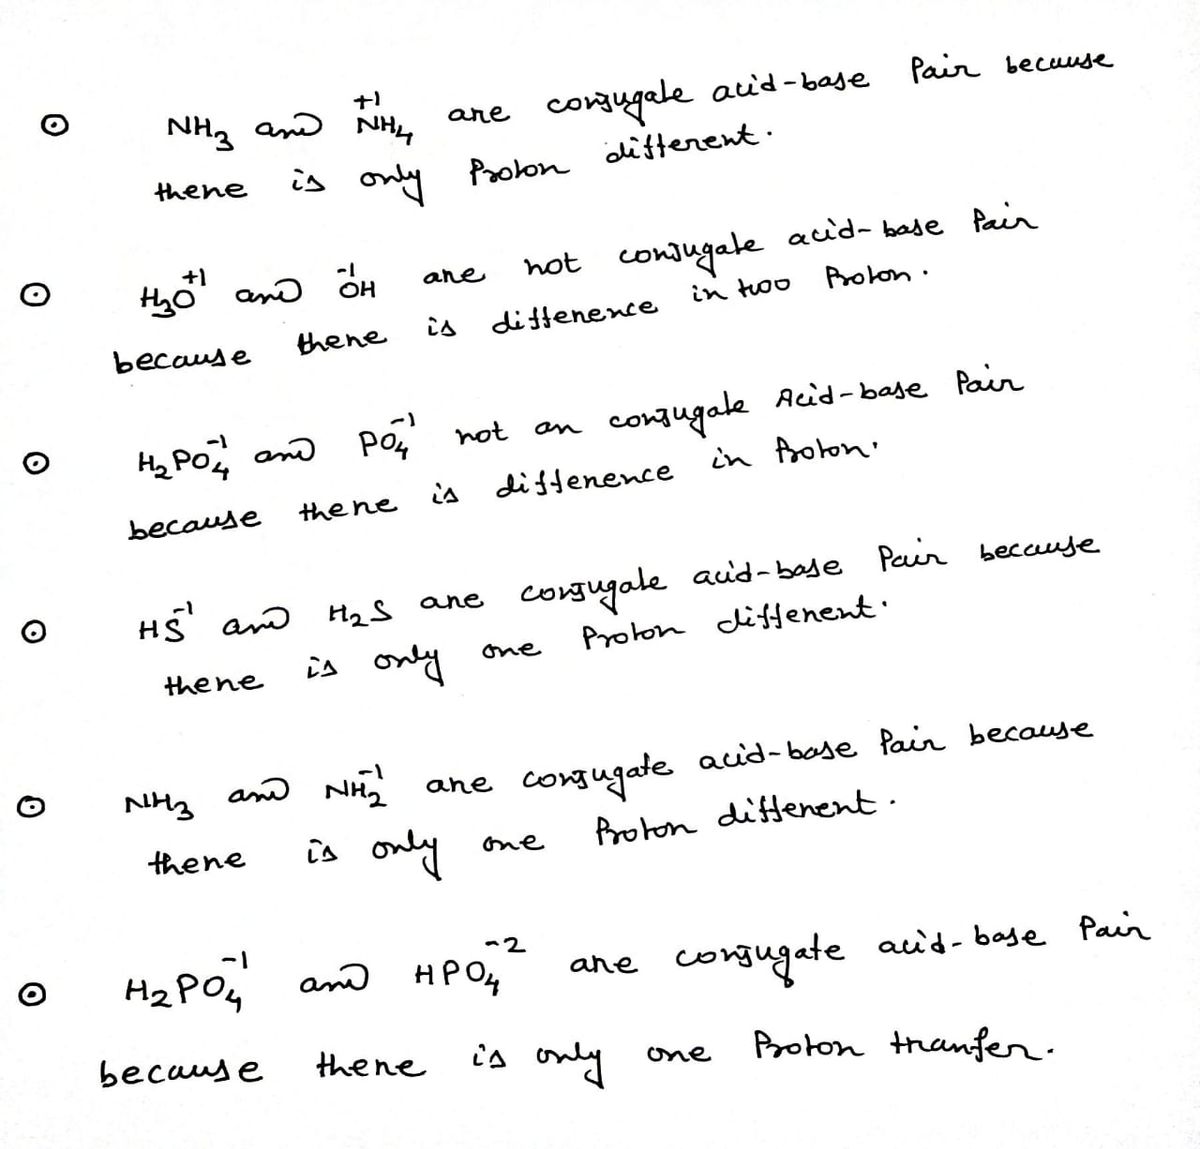 ⊙ NH₃ and NH₄⁺¹ are conjugate acid-base Pair because
there is only Proton different.
⊙ H₃O⁺¹ and ⁻¹OH are not conjugate acid-base Pair
because there is difference in two Proton.
⊙ H₂PO₄⁻¹ and PO₄⁻¹ not an conjugate Acid-base Pair
because there is difference in Proton.
⊙ HS⁻¹ and H₂S are conjugate acid-base Pair because
there is only one Proton different.
⊙ NH₃ and NH₂⁻¹ are conjugate acid-base Pair because
there is only one Proton different.
⊙ H₂PO₄⁻¹ and HPO₄⁻² are conjugate acid-base Pair
because there is only one Proton tranfer.